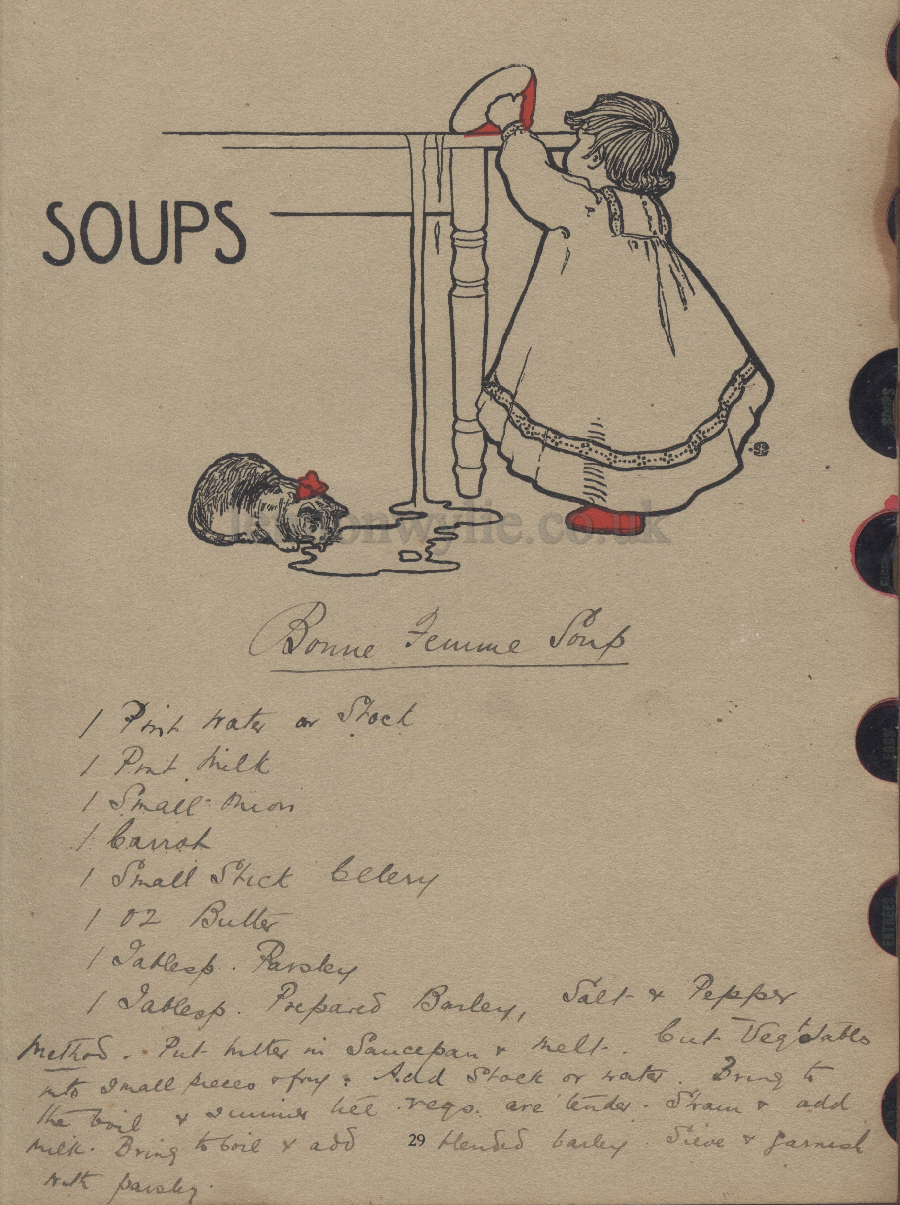 SOUPS
Bonne Femme Soup
1 Pint Water or Stock
1 Pint Milk
1 Small Onion
1 Carrot
1 Small Stick Celery
1 oz Butter
1 Tablesp. Parsley
1 Tablesp. Prepared Barley, Salt & Pepper
Method. Put butter in Saucepan & melt. Cut Vegetables
into small pieces & fry. Add Stock or water. Bring to
the boil & simmer till vegs. are tender. Strain & add
milk. Bring to boil & add blended barley. Sieve & garnish
with parsley.
29
SOUPS
EGGS
ENTREES
wylie.co.uk